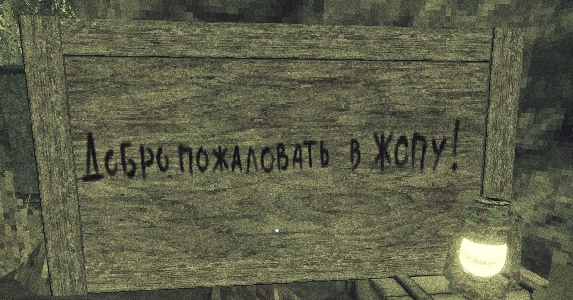 Добро пожаловать в ЖОПУ!